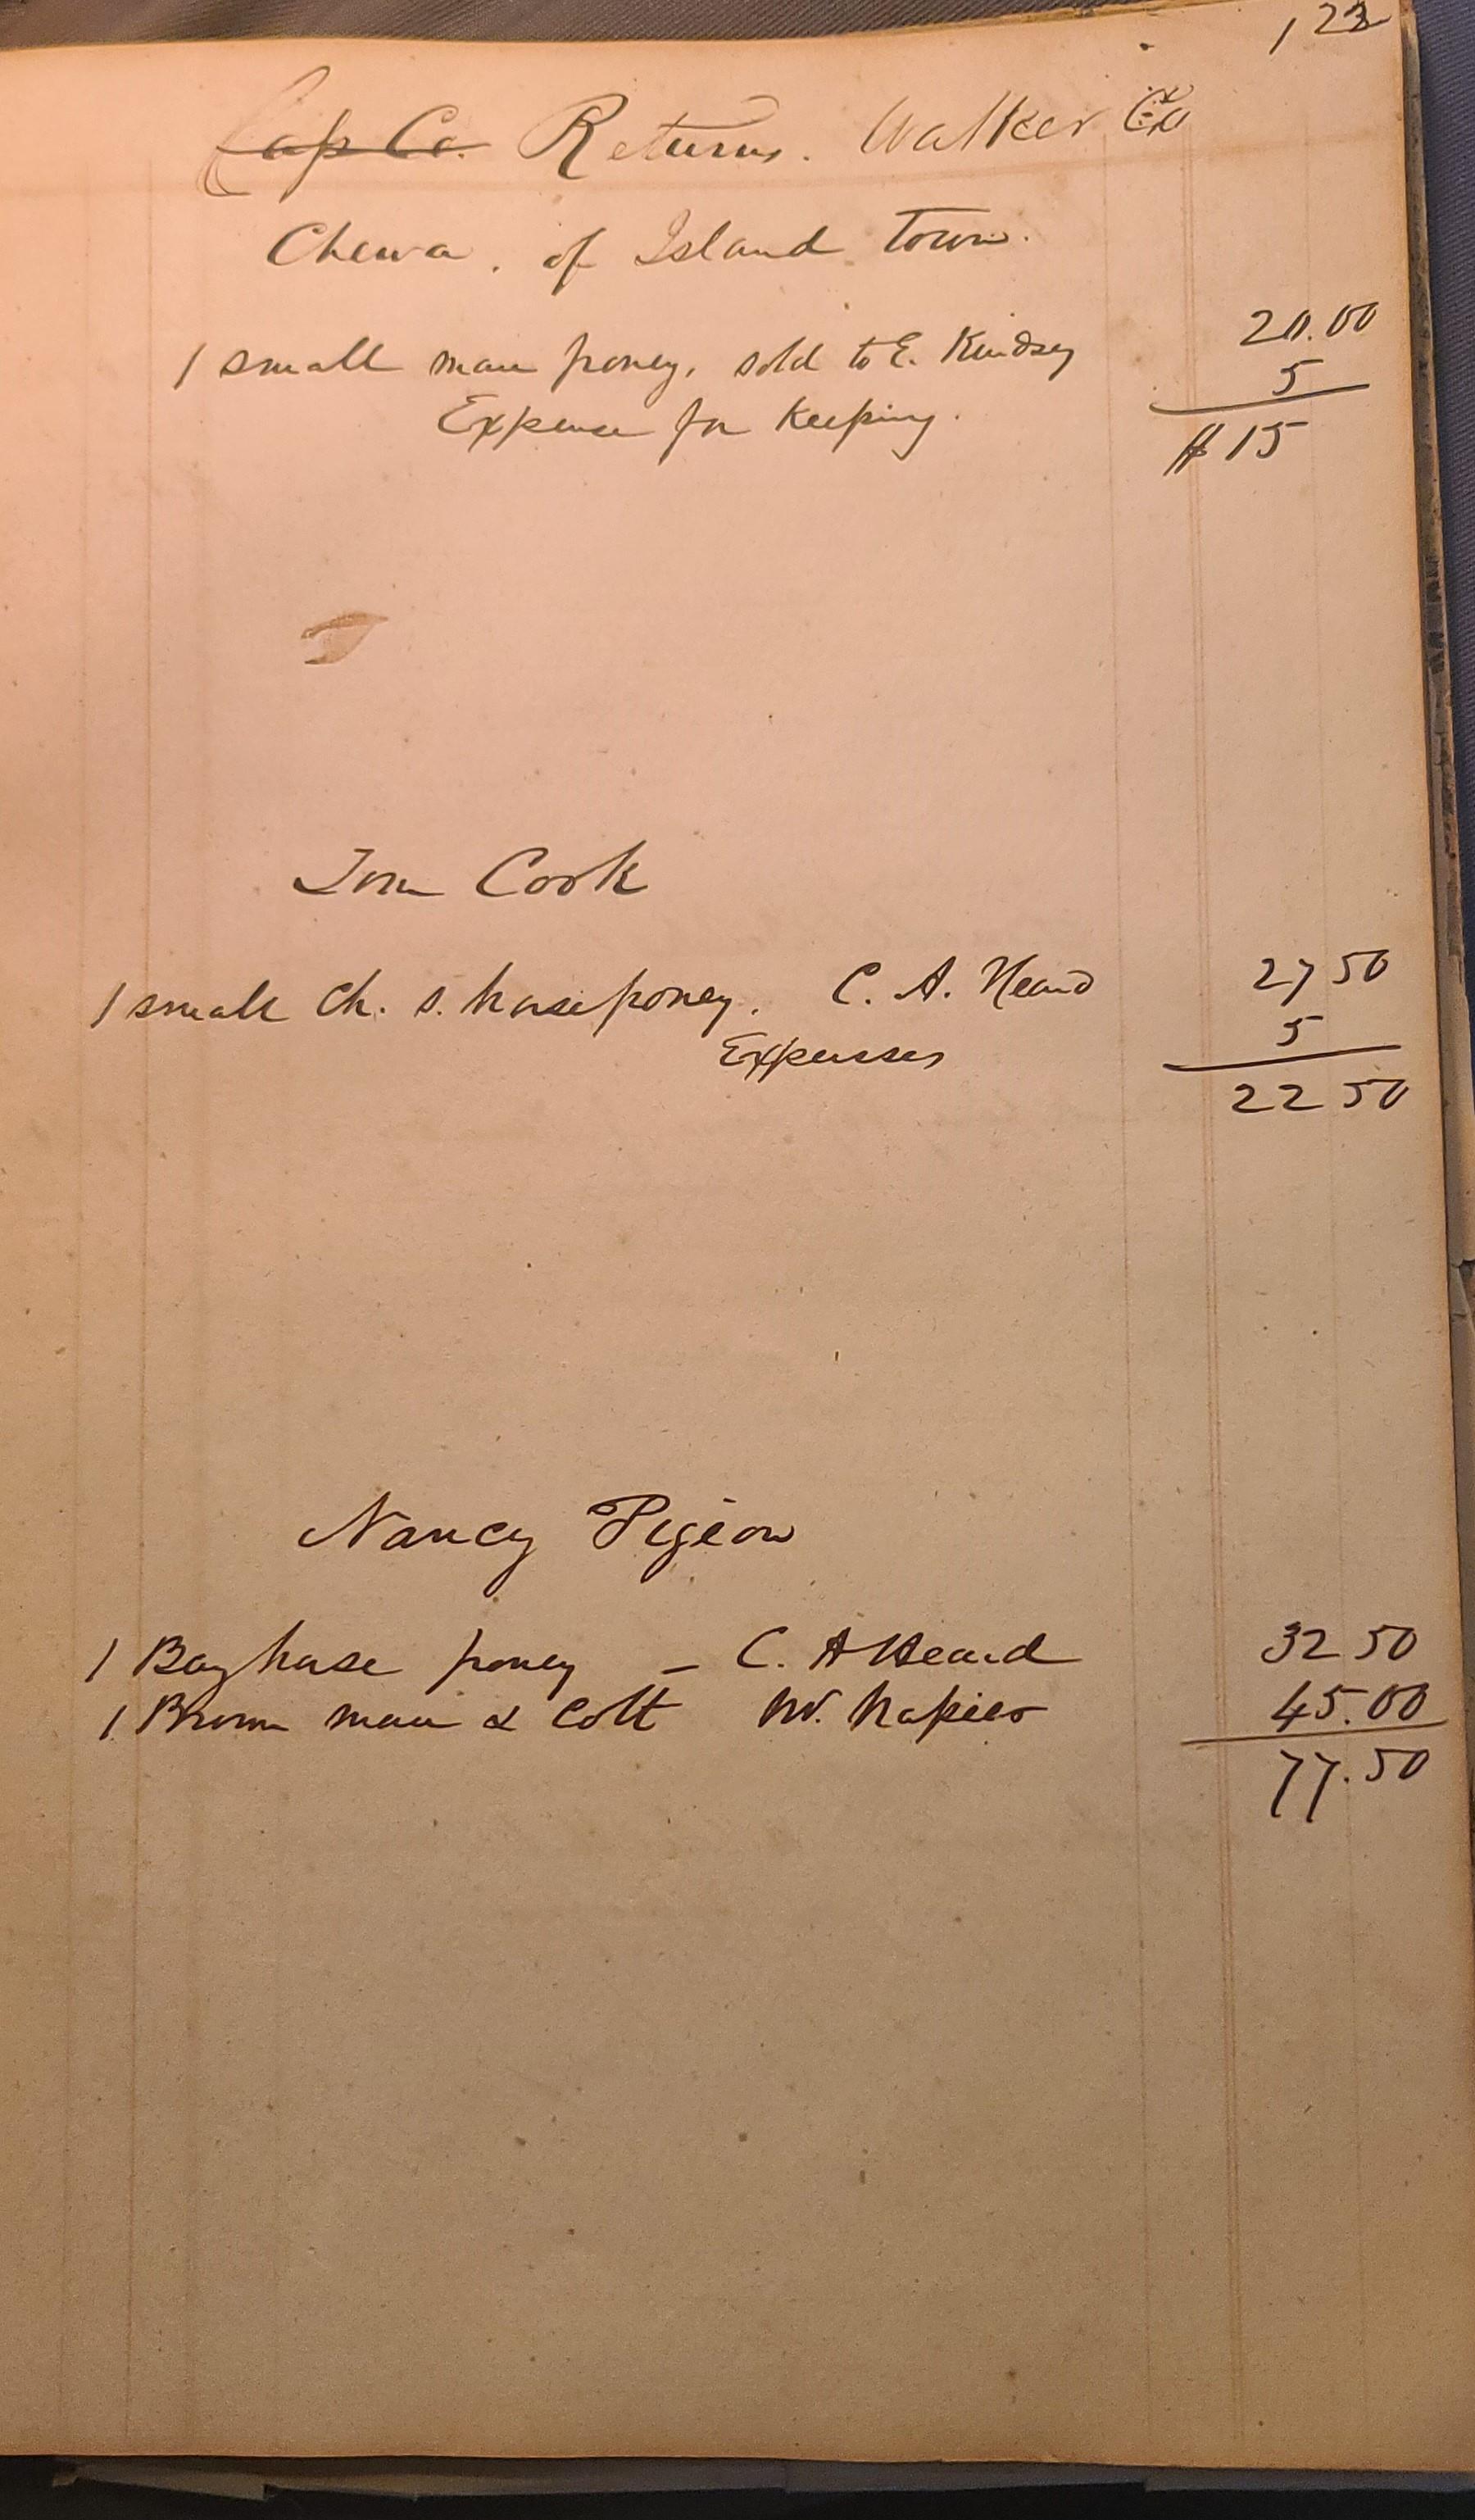 123
Cap Co. Returns. Walker Co
Chewa. of Island Town.
1 small mare poney, sold to E. Kindsey 20.00
Expense for Keeping. 5
$ 15
Tom Cook
1 small Ch. s. horse poney. C. A. Heard 27 50
Expenses 5
22 50
Nancy Pigeon
1 Bay horse poney – C. A Heard 32 50
1 Brown mare & Colt W. Napier 45.00
77.50